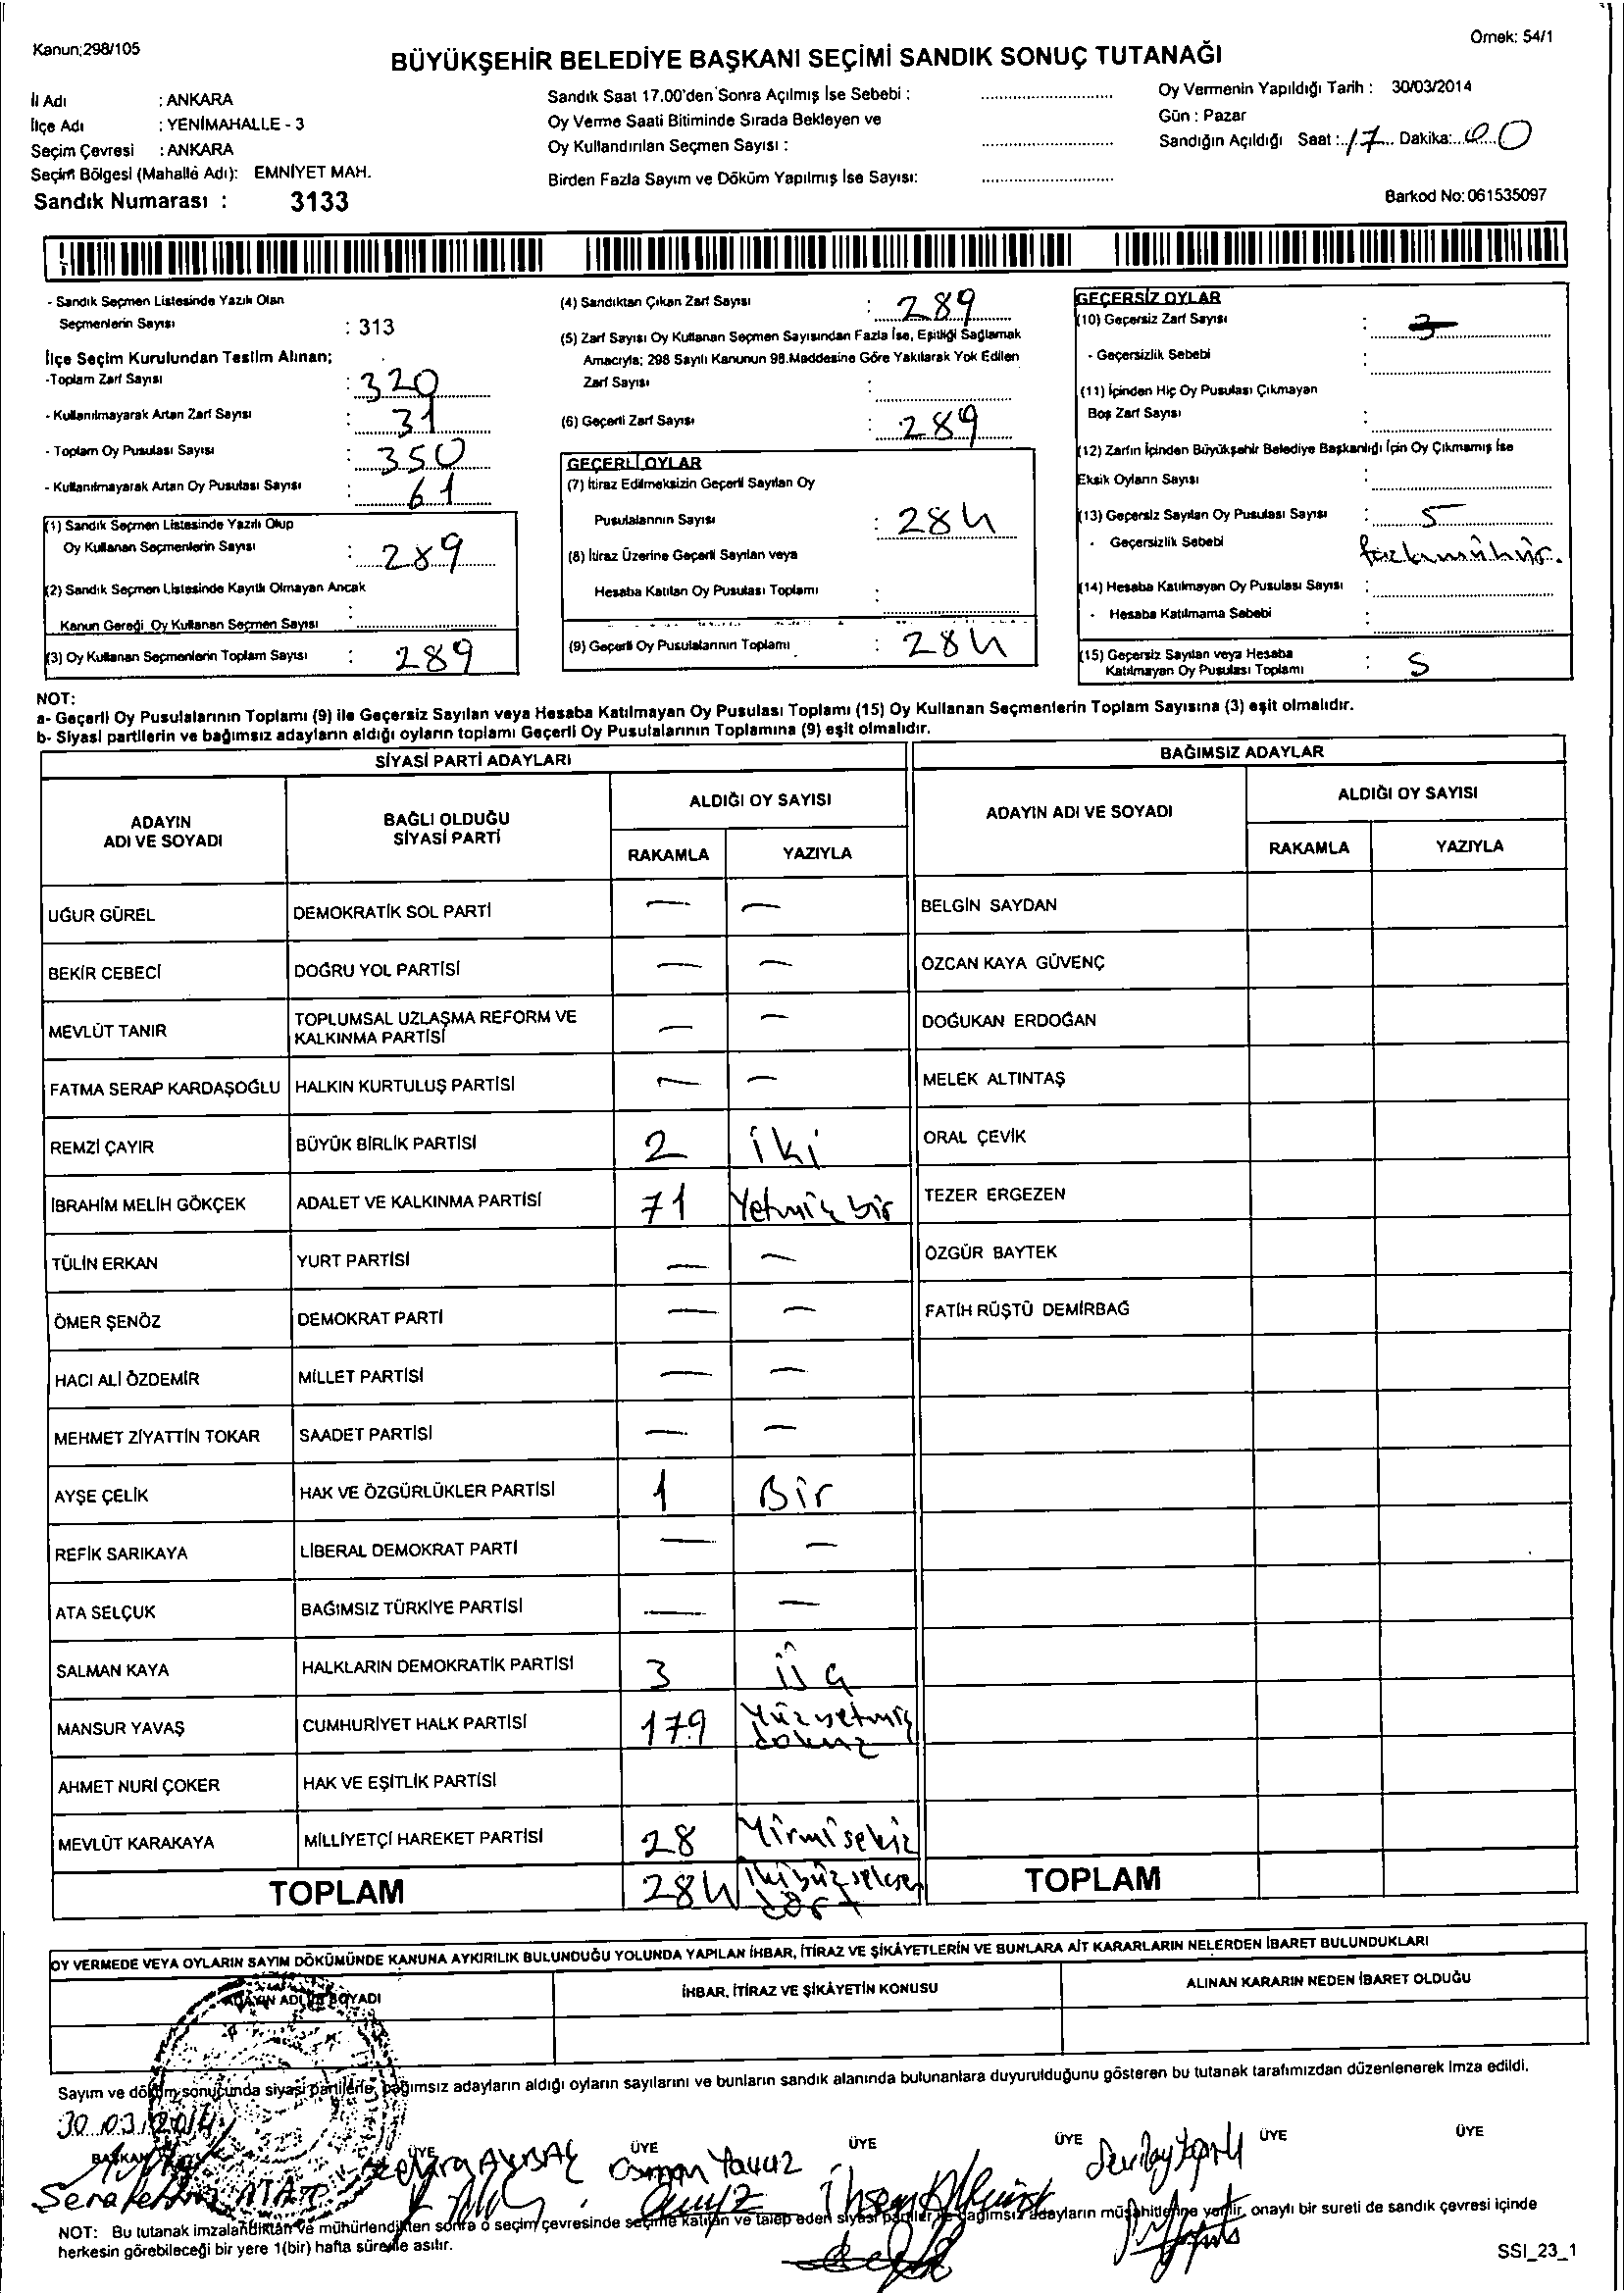 Kanun;298/105
Örnek: 54/1
BÜYÜKŞEHİR BELEDİYE BAŞKANI SEÇİMİ SANDIK SONUÇ TUTANAĞI
İl Adı : ANKARA
İlçe Adı : YENİMAHALLE - 3
Seçim Çevresi : ANKARA
Seçim Bölgesi (Mahalle Adı): EMNİYET MAH.
Sandık Numarası : 3133
Sandık Saat 17.00'den Sonra Açılmış İse Sebebi :
Oy Verme Saati Bitiminde Sırada Bekleyen ve
Oy Kullandırılan Seçmen Sayısı :
Birden Fazla Sayım ve Döküm Yapılmış İse Sayısı:
Oy Vermenin Yapıldığı Tarih : 30/03/2014
Gün : Pazar
Sandığın Açıldığı Saat : 17 Dakika: 00
Barkod No: 061535097
- Sandık Seçmen Listesinde Yazılı Olan
Seçmenlerin Sayısı : 313
İlçe Seçim Kurulundan Teslim Alınan;
-Toplam Zarf Sayısı : 320
- Kullanılmayarak Artan Zarf Sayısı : 31
- Toplam Oy Pusulası Sayısı : 350
- Kullanılmayarak Artan Oy Pusulası Sayısı : 61
(1) Sandık Seçmen Listesinde Yazılı Olup
Oy Kullanan Seçmenlerin Sayısı : 289
(2) Sandık Seçmen Listesinde Kayıtlı Olmayan Ancak
Kanun Gereği Oy Kullanan Seçmen Sayısı :
(3) Oy Kullanan Seçmenlerin Toplam Sayısı : 289
(4) Sandıktan Çıkan Zarf Sayısı : 289
(5) Zarf Sayısı Oy Kullanan Seçmen Sayısından Fazla İse, Eşitliği Sağlamak
Amacıyla; 298 Sayılı Kanunun 98.Maddesine Göre Yakılarak Yok Edilen
Zarf Sayısı :
(6) Geçerli Zarf Sayısı : 289
GEÇERLİ OYLAR
(7) İtiraz Edilmeksizin Geçerli Sayılan Oy
Pusulalarının Sayısı : 284
(8) İtiraz Üzerine Geçerli Sayılan veya
Hesaba Katılan Oy Pusulası Toplamı :
(9) Geçerli Oy Pusulalarının Toplamı : 284
GEÇERSİZ OYLAR
(10) Geçersiz Zarf Sayısı :
- Geçersizlik Sebebi :
(11) İçinden Hiç Oy Pusulası Çıkmayan
Boş Zarf Sayısı :
(12) Zarfın İçinden Büyükşehir Belediye Başkanlığı İçin Oy Çıkmamış İse
Eksik Oyların Sayısı :
(13) Geçersiz Sayılan Oy Pusulası Sayısı : 5
- Geçersizlik Sebebi fazla mühür.
(14) Hesaba Katılmayan Oy Pusulası Sayısı :
- Hesaba Katılmama Sebebi :
(15) Geçersiz Sayılan veya Hesaba
Katılmayan Oy Pusulası Toplamı : 5
NOT:
a- Geçerli Oy Pusulalarının Toplamı (9) ile Geçersiz Sayılan veya Hesaba Katılmayan Oy Pusulası Toplamı (15) Oy Kullanan Seçmenlerin Toplam Sayısına (3) eşit olmalıdır.
b- Siyasi partilerin ve bağımsız adayların aldığı oyların toplamı Geçerli Oy Pusulalarının Toplamına (9) eşit olmalıdır.
SİYASİ PARTİ ADAYLARI
BAĞIMSIZ ADAYLAR
ADAYIN ADI VE SOYADI
BAĞLI OLDUĞU SİYASİ PARTİ
ALDIĞI OY SAYISI
RAKAMLA YAZIYLA
ADAYIN ADI VE SOYADI
ALDIĞI OY SAYISI
RAKAMLA YAZIYLA
UĞUR GÜREL DEMOKRATİK SOL PARTİ — — BELGİN SAYDAN
BEKİR CEBECİ DOĞRU YOL PARTİSİ — — ÖZCAN KAYA GÜVENÇ
MEVLÜT TANIR TOPLUMSAL UZLAŞMA REFORM VE KALKINMA PARTİSİ — — DOĞUKAN ERDOĞAN
FATMA SERAP KARDAŞOĞLU HALKIN KURTULUŞ PARTİSİ — — MELEK ALTINTAŞ
REMZİ ÇAYIR BÜYÜK BİRLİK PARTİSİ 2 iki ORAL ÇEVİK
İBRAHİM MELİH GÖKÇEK ADALET VE KALKINMA PARTİSİ 71 Yetmiş bir TEZER ERGEZEN
TÜLİN ERKAN YURT PARTİSİ — — ÖZGÜR BAYTEK
ÖMER ŞENÖZ DEMOKRAT PARTİ — — FATİH RÜŞTÜ DEMİRBAĞ
HACI ALİ ÖZDEMİR MİLLET PARTİSİ — —
MEHMET ZİYATTİN TOKAR SAADET PARTİSİ — —
AYŞE ÇELİK HAK VE ÖZGÜRLÜKLER PARTİSİ 1 Bir
REFİK SARIKAYA LİBERAL DEMOKRAT PARTİ — —
ATA SELÇUK BAĞIMSIZ TÜRKİYE PARTİSİ — —
SALMAN KAYA HALKLARIN DEMOKRATİK PARTİSİ 3 üç
MANSUR YAVAŞ CUMHURİYET HALK PARTİSİ 179 Yüzyetmiş dokuz
AHMET NURİ ÇOKER HAK VE EŞİTLİK PARTİSİ
MEVLÜT KARAKAYA MİLLİYETÇİ HAREKET PARTİSİ 28 Yirmisekiz
TOPLAM 284 ikiyüzseksen dört TOPLAM
OY VERMEDE VEYA OYLARIN SAYIM DÖKÜMÜNDE KANUNA AYKIRILIK BULUNDUĞU YOLUNDA YAPILAN İHBAR, İTİRAZ VE ŞİKÂYETLERİN VE BUNLARA AİT KARARLARIN NELERDEN İBARET BULUNDUKLARI
ADAYIN ADI VE SOYADI İHBAR, İTİRAZ VE ŞİKÂYETİN KONUSU ALINAN KARARIN NEDEN İBARET OLDUĞU
Sayım ve döküm sonucunda siyasi partilerle, bağımsız adayların aldığı oyların sayılarını ve bunların sandık alanında bulunanlara duyurulduğunu gösteren bu tutanak tarafımızdan düzenlenerek imza edildi.
30.03.2014
BAŞKAN ÜYE ÜYE ÜYE ÜYE ÜYE ÜYE
Osman Yavuz
NOT: Bu tutanak imzalandıktan ve mühürlendikten sonra o seçim çevresinde seçime katılan ve talep eden siyasi partiler ile bağımsız adayların müşahitlerine verilir, onaylı bir sureti de sandık çevresi içinde
herkesin görebileceği bir yere 1(bir) hafta süreyle asılır.
SSI_23_1